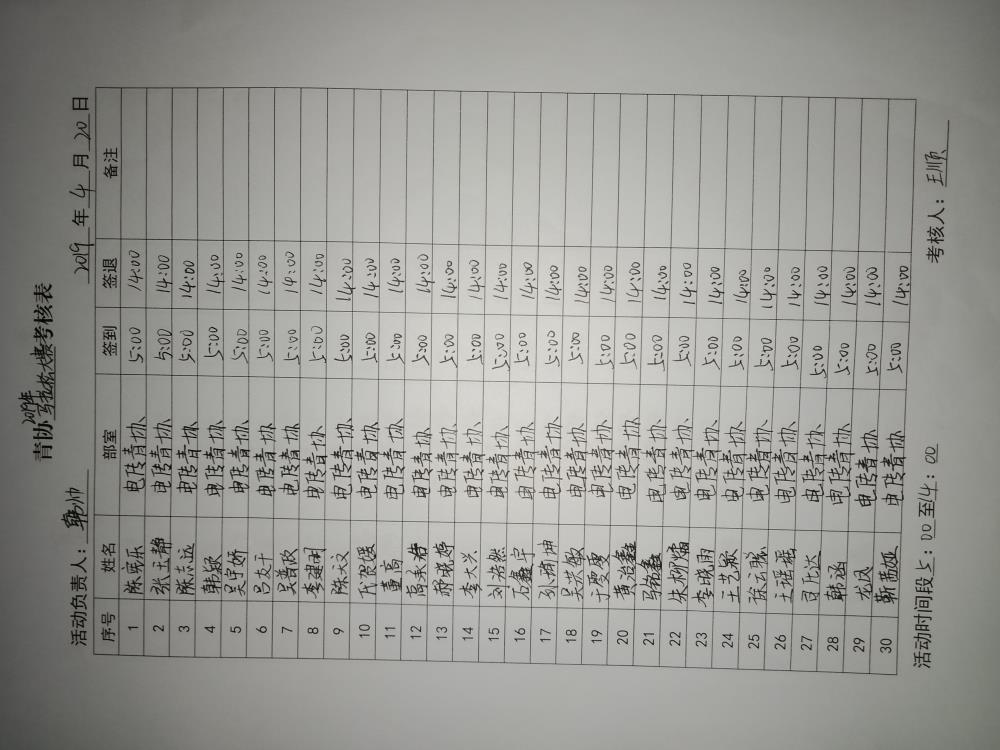 青协2019年马拉松大赛考核表
活动负责人：韩帅 2019年4月20日
序号 姓名 部室 签到 签退 备注
1 陈宛乐 电传青协 5:00 14:00
2 张玉静 电传青协 5:00 14:00
3 陈志远 电传青协 5:00 14:00
4 韩欣 电传青协 5:00 14:00
5 吴宇娇 电传青协 5:00 14:00
6 吕文千 电传青协 5:00 14:00
7 吴普政 电传青协 5:00 14:00
8 李建明 电传青协 5:00 14:00
9 陈文 电传青协 5:00 14:00
10 代贺媛 电传青协 5:00 14:00
11 董高 电传青协 5:00 14:00
12 高永 电传青协 5:00 14:00
13 郝晓婷 电传青协 5:00 14:00
14 李大兴 电传青协 5:00 14:00
15 刘浩然 电传青协 5:00 14:00
16 石鑫宇 电传青协 5:00 14:00
17 孔琦坤 电传青协 5:00 14:00
18 吴洪敏 电传青协 5:00 14:00
19 于雯雯 电传青协 5:00 14:00
20 黄治鑫 电传青协 5:00 14:00
21 马铭鑫 电传青协 5:00 14:00
22 朱柳熺 电传青协 5:00 14:00
23 李晓雨 电传青协 5:00 14:00
24 王艺颖 电传青协 5:00 14:00
25 徐云聪 电传青协 5:00 14:00
26 王瑶瑶 电传青协 5:00 14:00
27 电传青协 5:00 14:00
28 韩涵 电传青协 5:00 14:00
29 龙凤 电传青协 5:00 14:00
30 靳茜亚 电传青协 5:00 14:00
活动时间段5:00至14:00 考核人：王顺